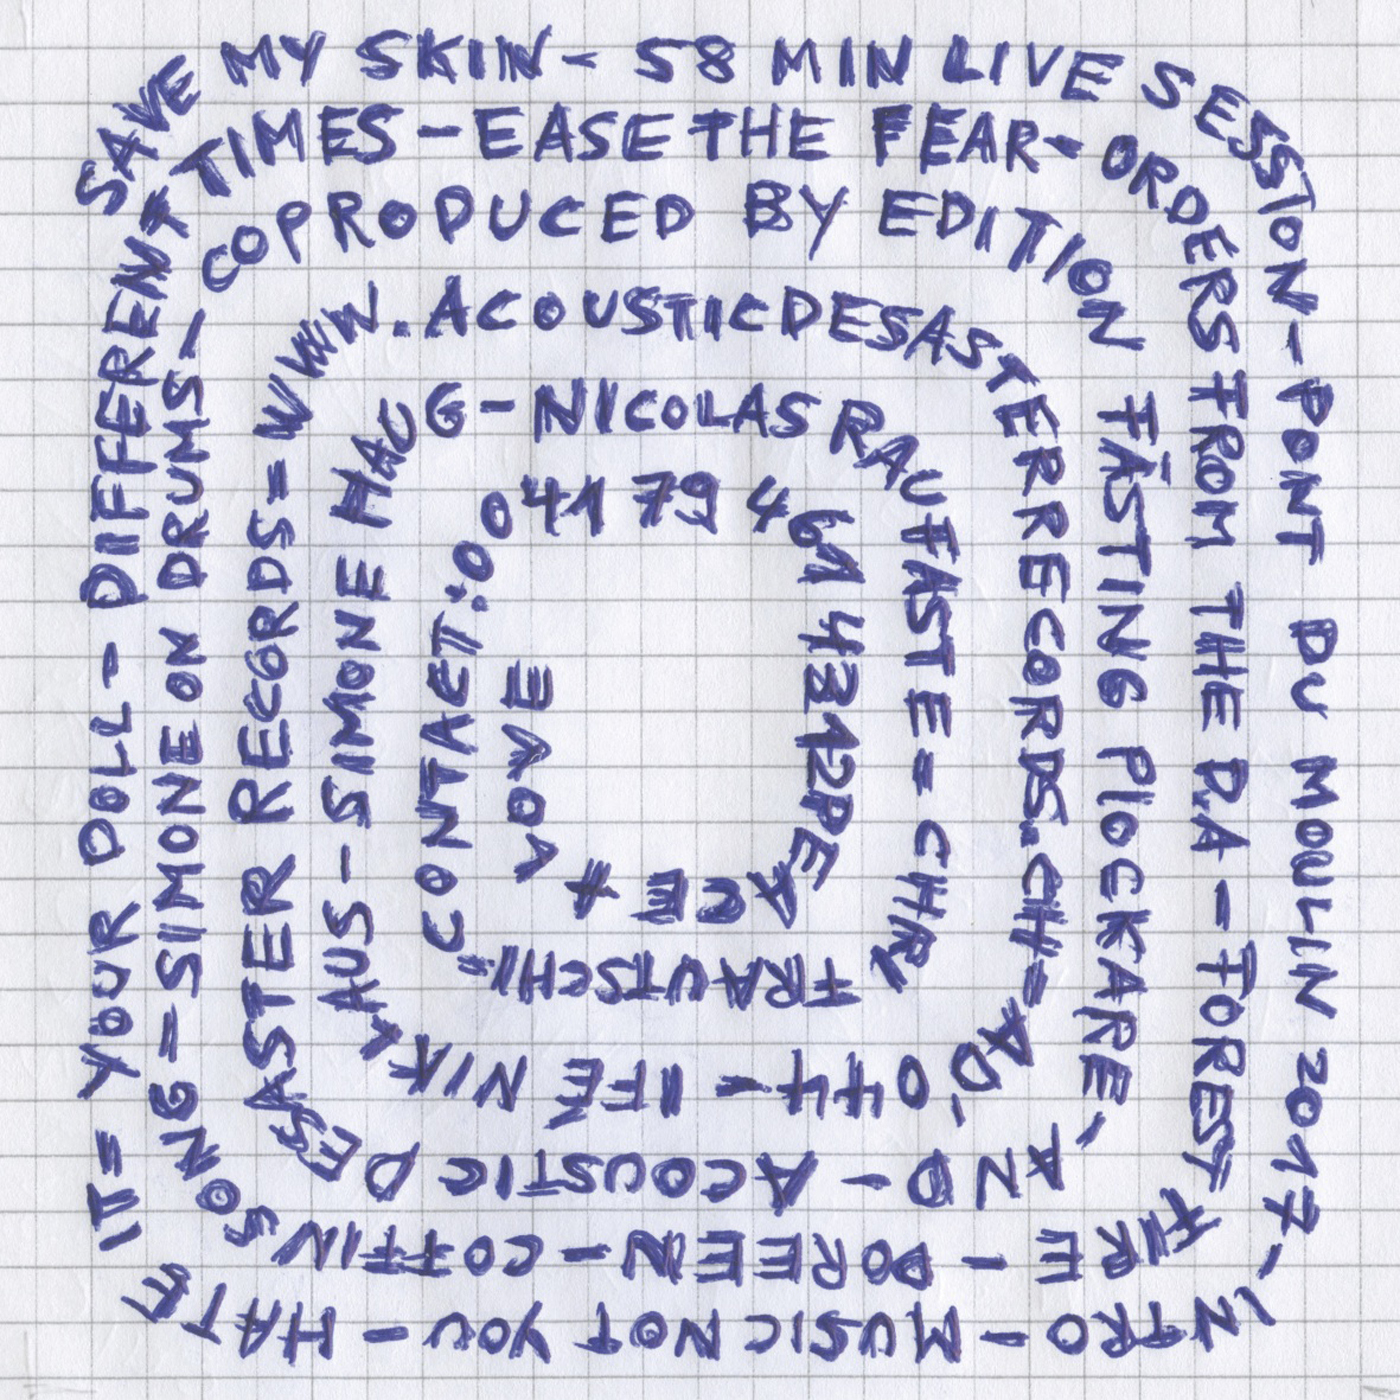 SAVE MY SKIN - 58 MIN LIVE SESSION - PONT
DU MOULIN 2017 - INTRO - MUSIC NOT YOU - HATE
IT = YOUR DOLL - DIFFERENT TIMES - EASE THE FEAR - ORDERS FROM THE P.A - FOREST
FIRE - DOREEN - COFFIN SONG - SIMONE ON DRUMS -
COPRODUCED BY EDITION FĀSTING PLOCKARE -
AND - ACOUSTIC DESASTER RECORDS =
WWW.ACOUSTICDESASTERRECORDS.CH =
AD'044 - IFE NIKLAUS - SIMONE HAUG - NICOLAS RAUFASTE = CHRI
FRAUTSCHI" CONTACT:
0041 79 461 4312 PEACE + LOVE